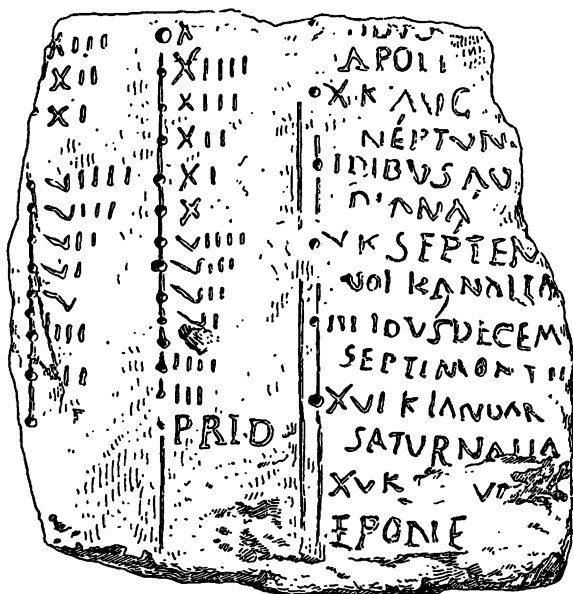 XII
XI
VIIII
VIII
VII
VI
V
III
II
X
XIIII
XIII
XII
XI
X
VIIII
VIII
VII
IIII
III
PRID
APOLL
X K AVG
NEPTVN
IDIBVS AV
DIANA
V K SEPTEN
VOLKANALIA
III IDVS DECEM
SEPTIMONTI
XVI K IANVAR
SATVRNALIA
XV K
EPONE